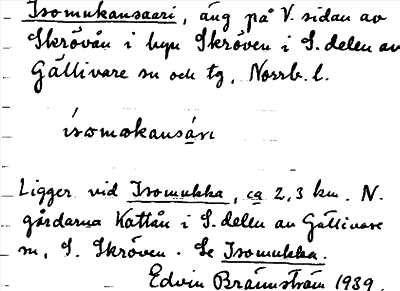 Isomukansaari, äng på V. sidan av
Skrövån i byn Skröven i S. delen av
Gällivare sn och tg, Norrb. l.
ísomokansári
Ligger vid Isomukka, ca 2,3 km. N.
gårdarna Kattån i S. delen av Gällivare
sn, S. Skröven. Se Isomukka.
Edvin Brännström 1939.